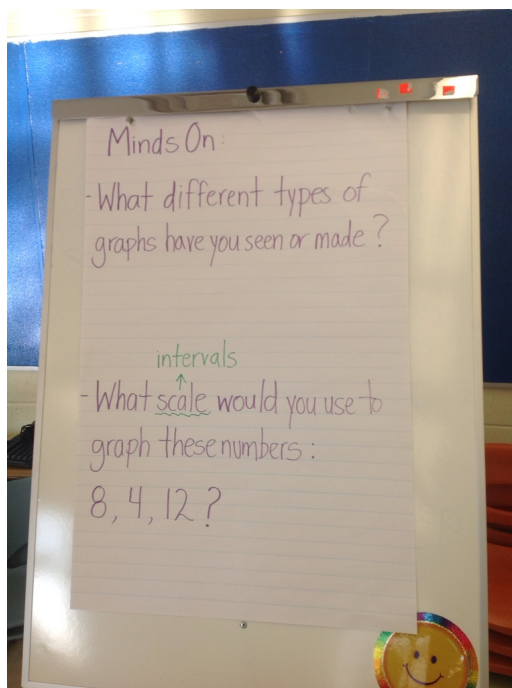 Minds On:
- What different types of
graphs have you seen or made?
intervals
- What scale would you use to
graph these numbers:
8, 4, 12?